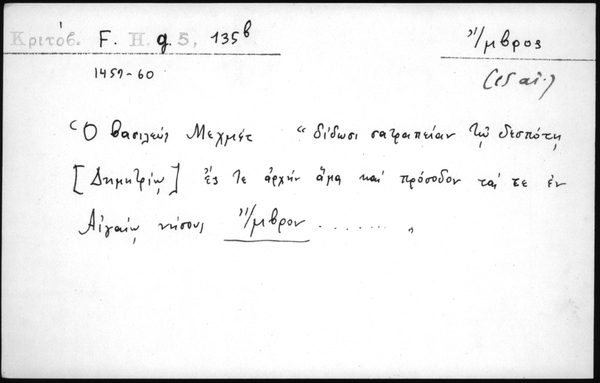 Κριτόβ. F. H. g. 5, 135b
Ἴμβρος
1459-60
(15 αἰ.)
Ὁ βασιλεὺς Μεχμὲτ "δίδωσι σατραπείαν τῷ δεσπότῃ
[Δημητρίῳ] ἔς τε ἀρχὴν ἅμα καὶ πρόσοδον τάς τε ἐν
Αἰγαίῳ νήσους Ἴμβρον ......... "